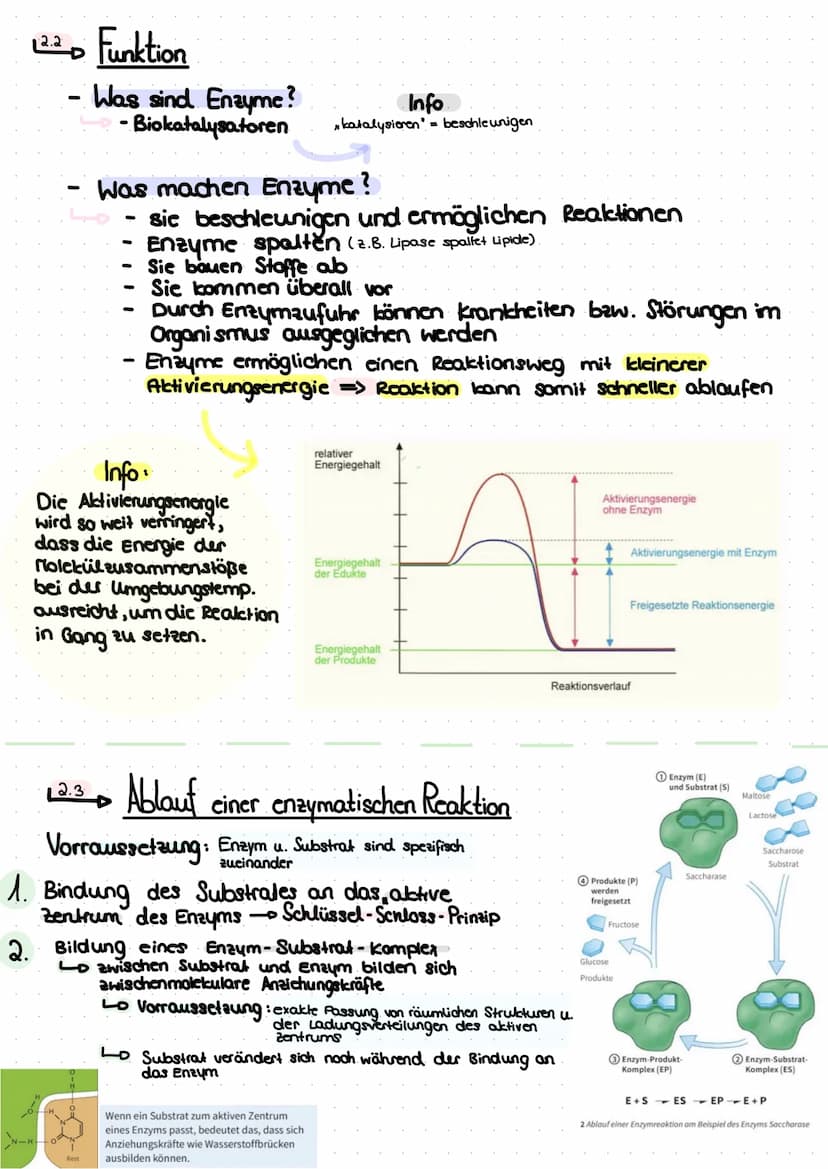 2.2 Funktion
- Was sind Enzyme?
- Biokatalysatoren
Info
„katalysieren" = beschleunigen
- Was machen Enzyme?
- sie beschleunigen und ermöglichen Reaktionen
- Enzyme spalten (z.B. Lipase spaltet Lipide)
- Sie bauen Stoffe ab
- Sie kommen überall vor
- Durch Enzymzufuhr können Krankheiten bzw. Störungen im
Organismus ausgeglichen werden
- Enzyme ermöglichen einen Reaktionsweg mit kleinerer
Aktivierungsenergie => Reaktion kann somit schneller ablaufen
Info:
Die Aktivierungsenergie
wird so weit verringert,
dass die Energie der
Molekülzusammenstöße
bei der Umgebungstemp.
ausreicht, um die Reaktion
in Gang zu setzen.
relativer
Energiegehalt
Aktivierungsenergie
ohne Enzym
Aktivierungsenergie mit Enzym
Energiegehalt
der Edukte
Freigesetzte Reaktionsenergie
Energiegehalt
der Produkte
Reaktionsverlauf
2.3 Ablauf einer enzymatischen Reaktion
Vorraussetzung: Enzym u. Substrat sind spezifisch
zueinander
1. Bindung des Substrates an das aktive
Zentrum des Enzyms → Schlüssel-Schloss-Prinzip
2. Bildung eines Enzym-Substrat-Komplex
zwischen Substrat und Enzym bilden sich
zwischenmolekulare Anziehungskräfte
Vorraussetzung: exakte Passung von räumlichen Strukturen u.
der Ladungsverteilungen des aktiven
Zentrums
Substrat verändert sich noch während der Bindung an
das Enzym
① Enzym (E)
und Substrat (S)
Maltose
Lactose
Saccharose
Substrat
Saccharase
④ Produkte (P)
werden
freigesetzt
Fructose
Glucose
Produkte
③ Enzym-Produkt-
Komplex (EP)
② Enzym-Substrat-
Komplex (ES)
E + S → ES → EP → E + P
2 Ablauf einer Enzymreaktion am Beispiel des Enzyms Saccharase
O
H
H
O
H
N
O
N
N
H
O
Rest
Wenn ein Substrat zum aktiven Zentrum
eines Enzyms passt, bedeutet das, dass sich
Anziehungskräfte wie Wasserstoffbrücken
ausbilden können.